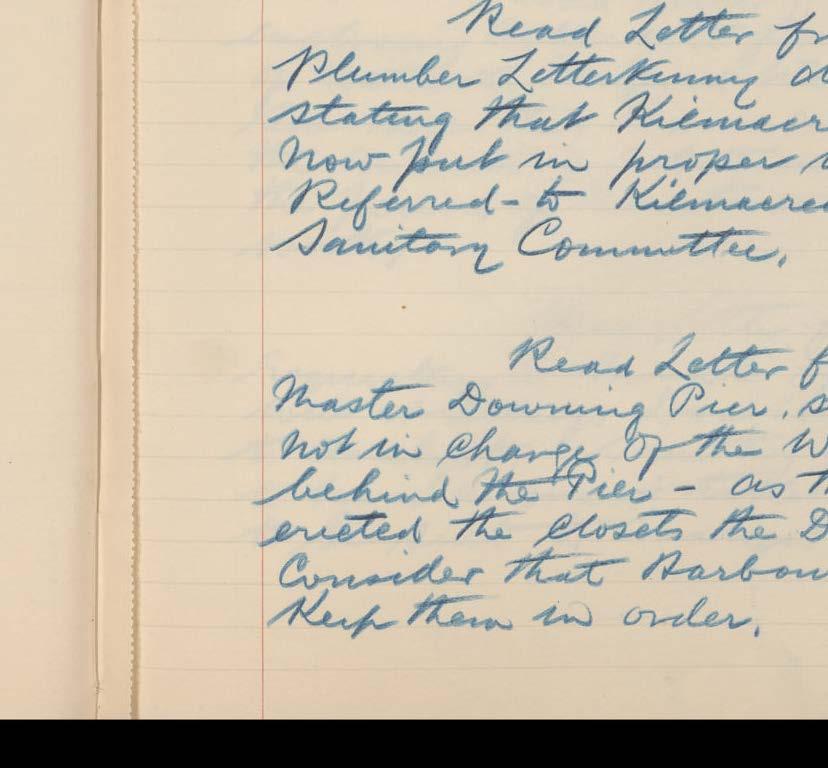 Read Letter fr
Plumber Letterkenny
stating that Kilmacr
Now put in proper
Referred - to Kilmacre
Sanitary Committee.
Read Letter f
Master Downing Pier. s
not in charge of the W
behind the Pier - as th
erected the closets the D
Consider that Harbou
Keep them in order.